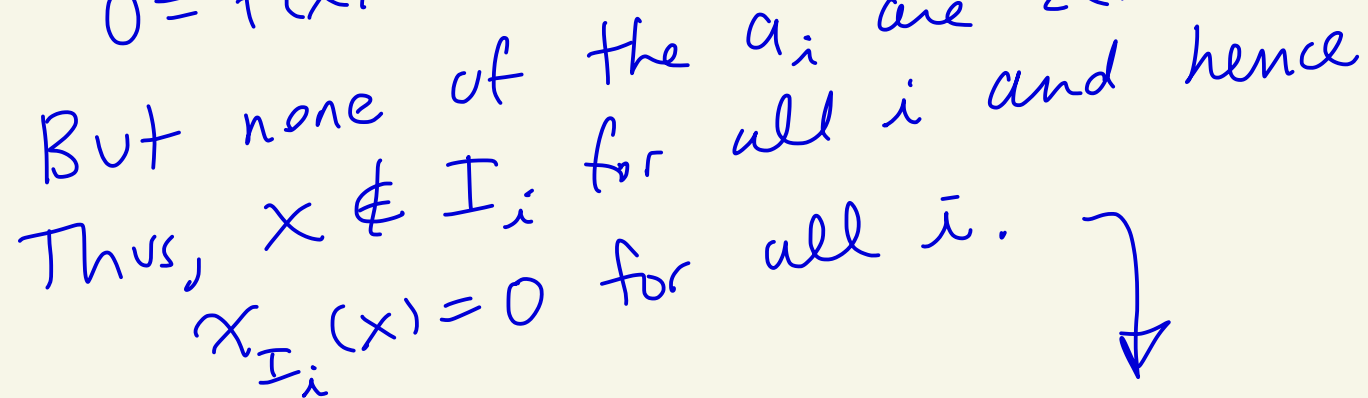 0 = f(x)
But none of the aᵢ are
Thus, x ∉ Iᵢ for all i and hence
χ_{Iᵢ}(x) = 0 for all i.